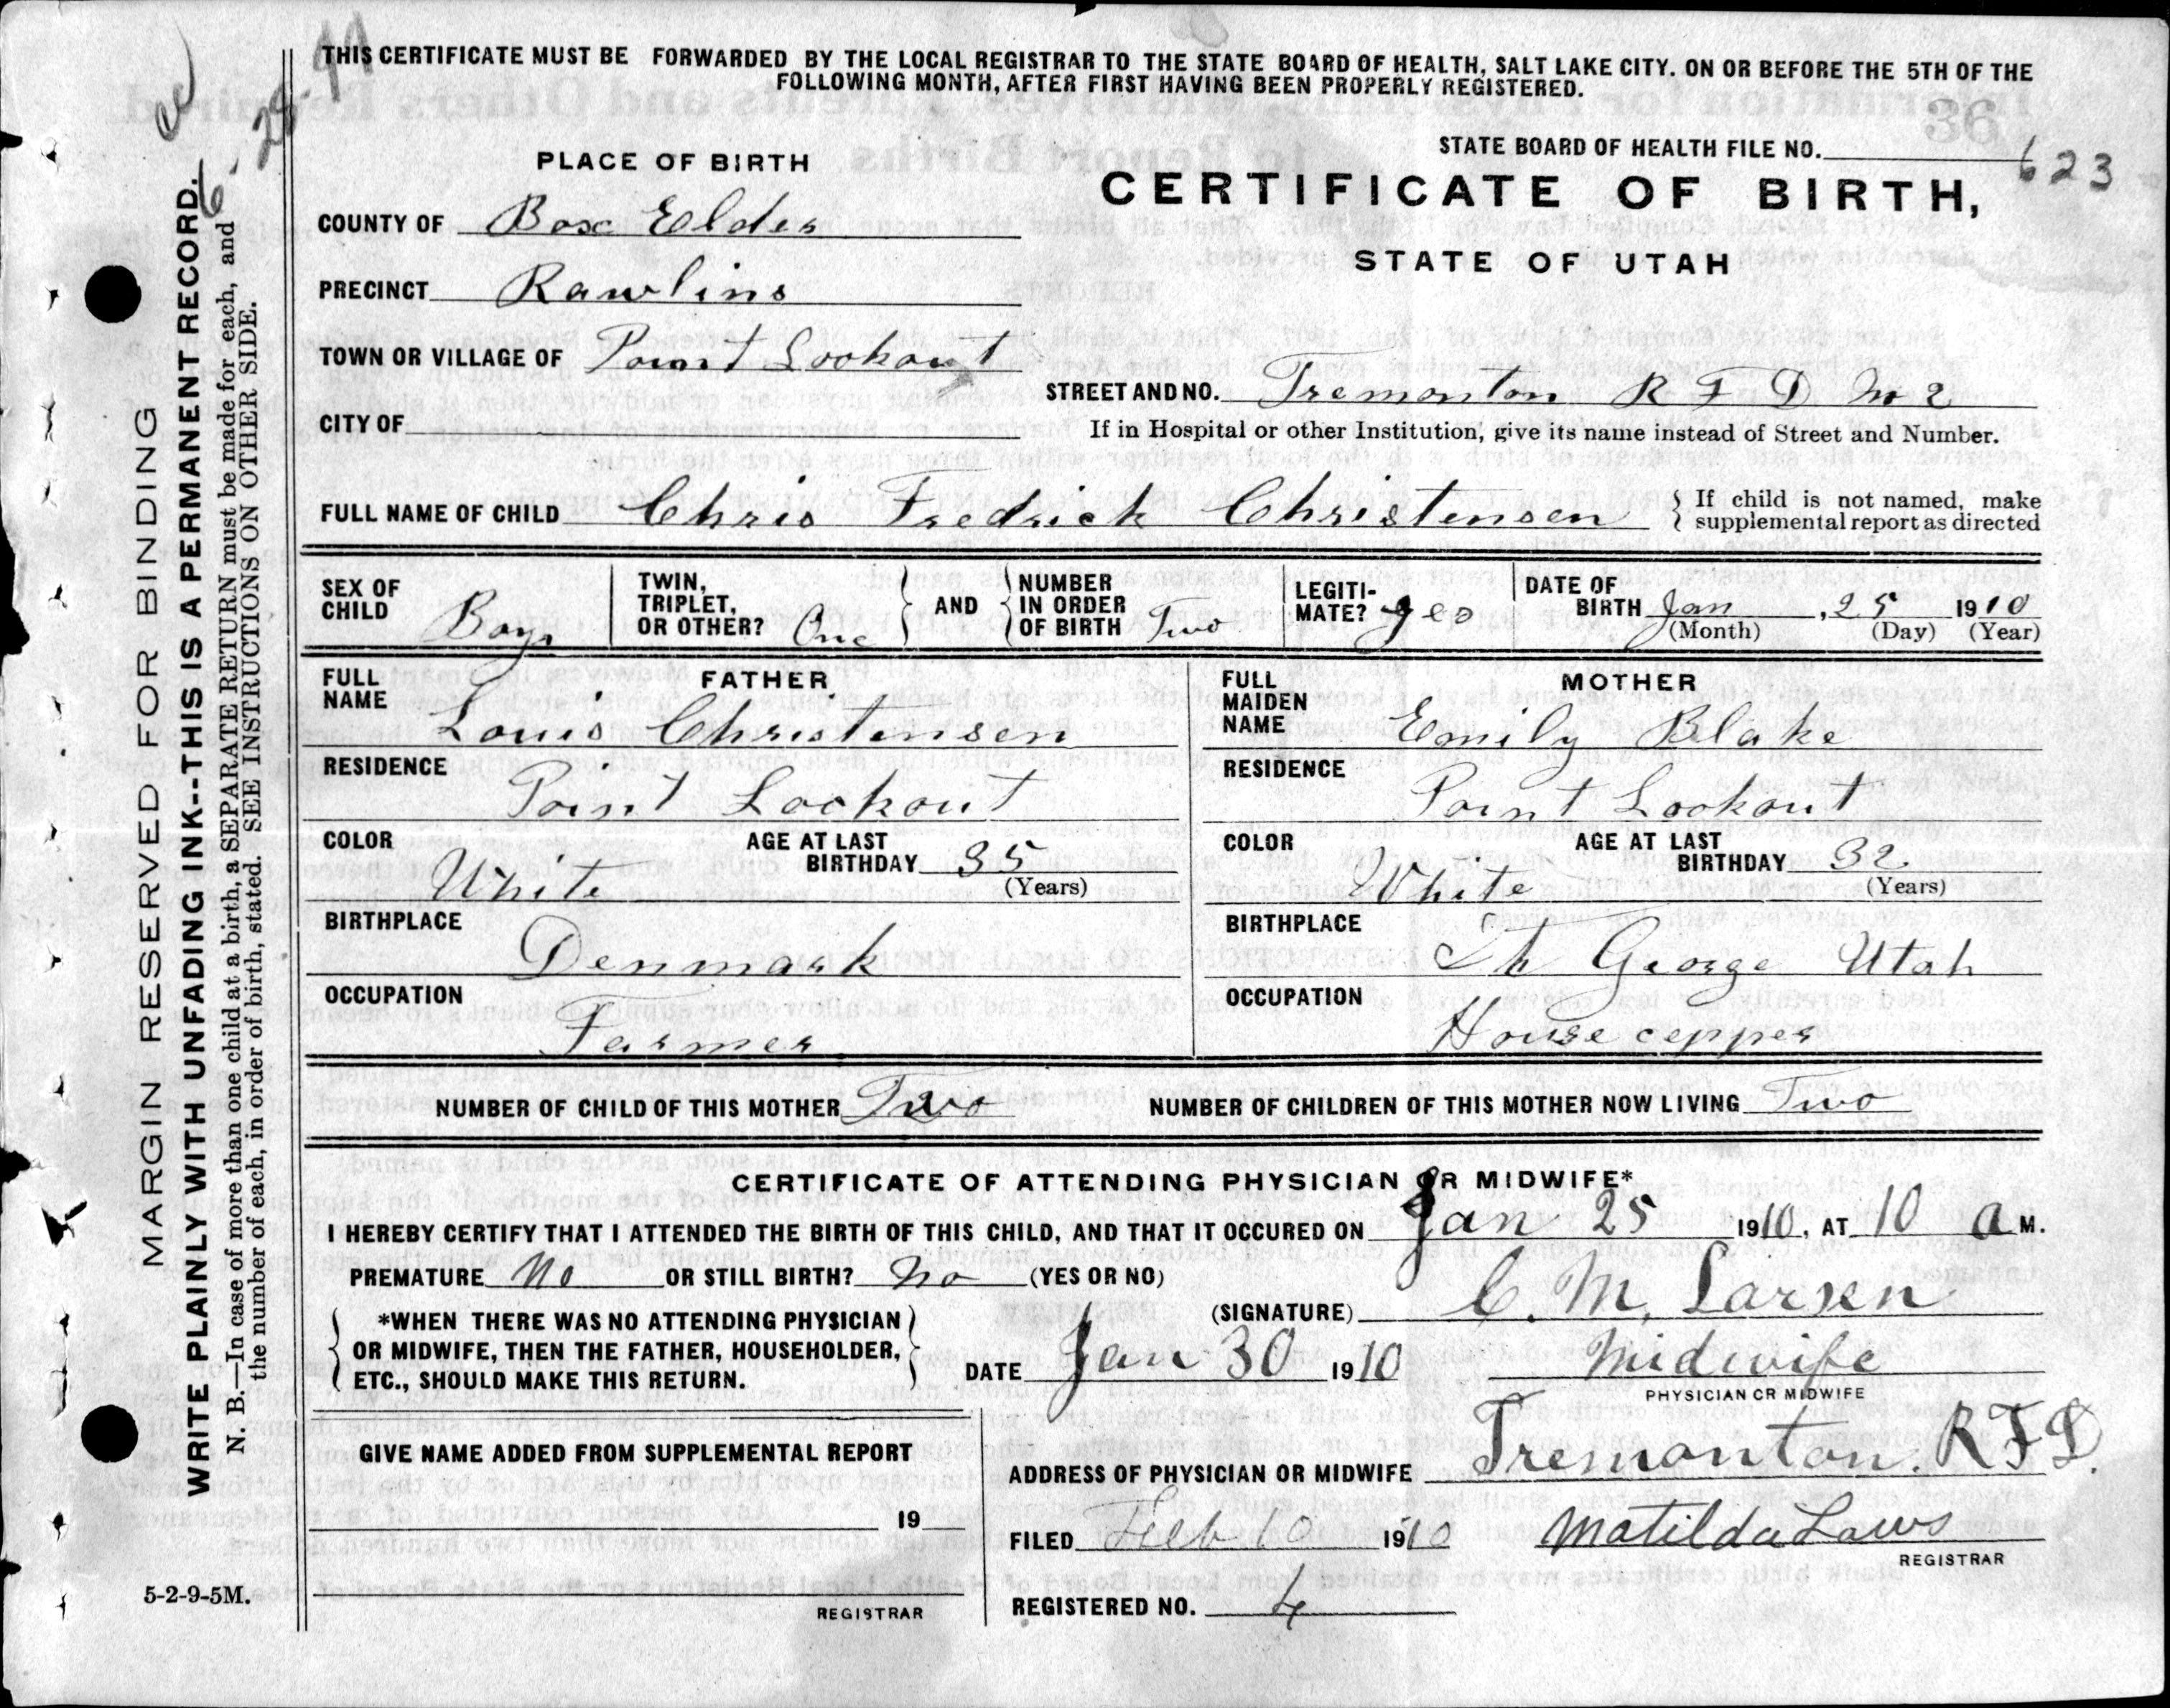 THIS CERTIFICATE MUST BE FORWARDED BY THE LOCAL REGISTRAR TO THE STATE BOARD OF HEALTH, SALT LAKE CITY. ON OR BEFORE THE 5TH OF THE
FOLLOWING MONTH, AFTER FIRST HAVING BEEN PROPERLY REGISTERED.
36
STATE BOARD OF HEALTH FILE NO. 623
PLACE OF BIRTH
CERTIFICATE OF BIRTH,
STATE OF UTAH
COUNTY OF Box Elder
PRECINCT Rawlins
TOWN OR VILLAGE OF Point Lookout
STREET AND NO. Tremonton R F D No 2
CITY OF
If in Hospital or other Institution, give its name instead of Street and Number.
FULL NAME OF CHILD Chris Fredrick Christensen { If child is not named, make
supplemental report as directed
SEX OF CHILD Boy
TWIN, TRIPLET, OR OTHER? One } AND { NUMBER IN ORDER OF BIRTH Two
LEGITI-MATE? yes
DATE OF BIRTH Jan, 25 1910
(Month) (Day) (Year)
FATHER
FULL NAME Louis Christensen
RESIDENCE Point Lookout
COLOR White AGE AT LAST BIRTHDAY 35
(Years)
BIRTHPLACE Denmark
OCCUPATION Farmer
MOTHER
FULL MAIDEN NAME Emily Blake
RESIDENCE Point Lookout
COLOR White AGE AT LAST BIRTHDAY 32
(Years)
BIRTHPLACE St George Utah
OCCUPATION House cepper
NUMBER OF CHILD OF THIS MOTHER Two NUMBER OF CHILDREN OF THIS MOTHER NOW LIVING Two
CERTIFICATE OF ATTENDING PHYSICIAN OR MIDWIFE*
I HEREBY CERTIFY THAT I ATTENDED THE BIRTH OF THIS CHILD, AND THAT IT OCCURED ON Jan 25 1910, AT 10 a M.
PREMATURE No OR STILL BIRTH? No (YES OR NO)
(SIGNATURE) C. M. Larsen
*WHEN THERE WAS NO ATTENDING PHYSICIAN
OR MIDWIFE, THEN THE FATHER, HOUSEHOLDER,
ETC., SHOULD MAKE THIS RETURN.
DATE Jan 30 1910 Midwife
PHYSICIAN OR MIDWIFE
GIVE NAME ADDED FROM SUPPLEMENTAL REPORT
19
REGISTRAR
ADDRESS OF PHYSICIAN OR MIDWIFE Tremonton. RFD.
FILED Feb 10 1910 Matilda Laws
REGISTRAR
REGISTERED NO. 4
5-2-9-5M.
MARGIN RESERVED FOR BINDING
WRITE PLAINLY WITH UNFADING INK--THIS IS A PERMANENT RECORD.
N. B.—In case of more than one child at a birth, a SEPARATE RETURN must be made for each, and
the number of each, in order of birth, stated. SEE INSTRUCTIONS ON OTHER SIDE.